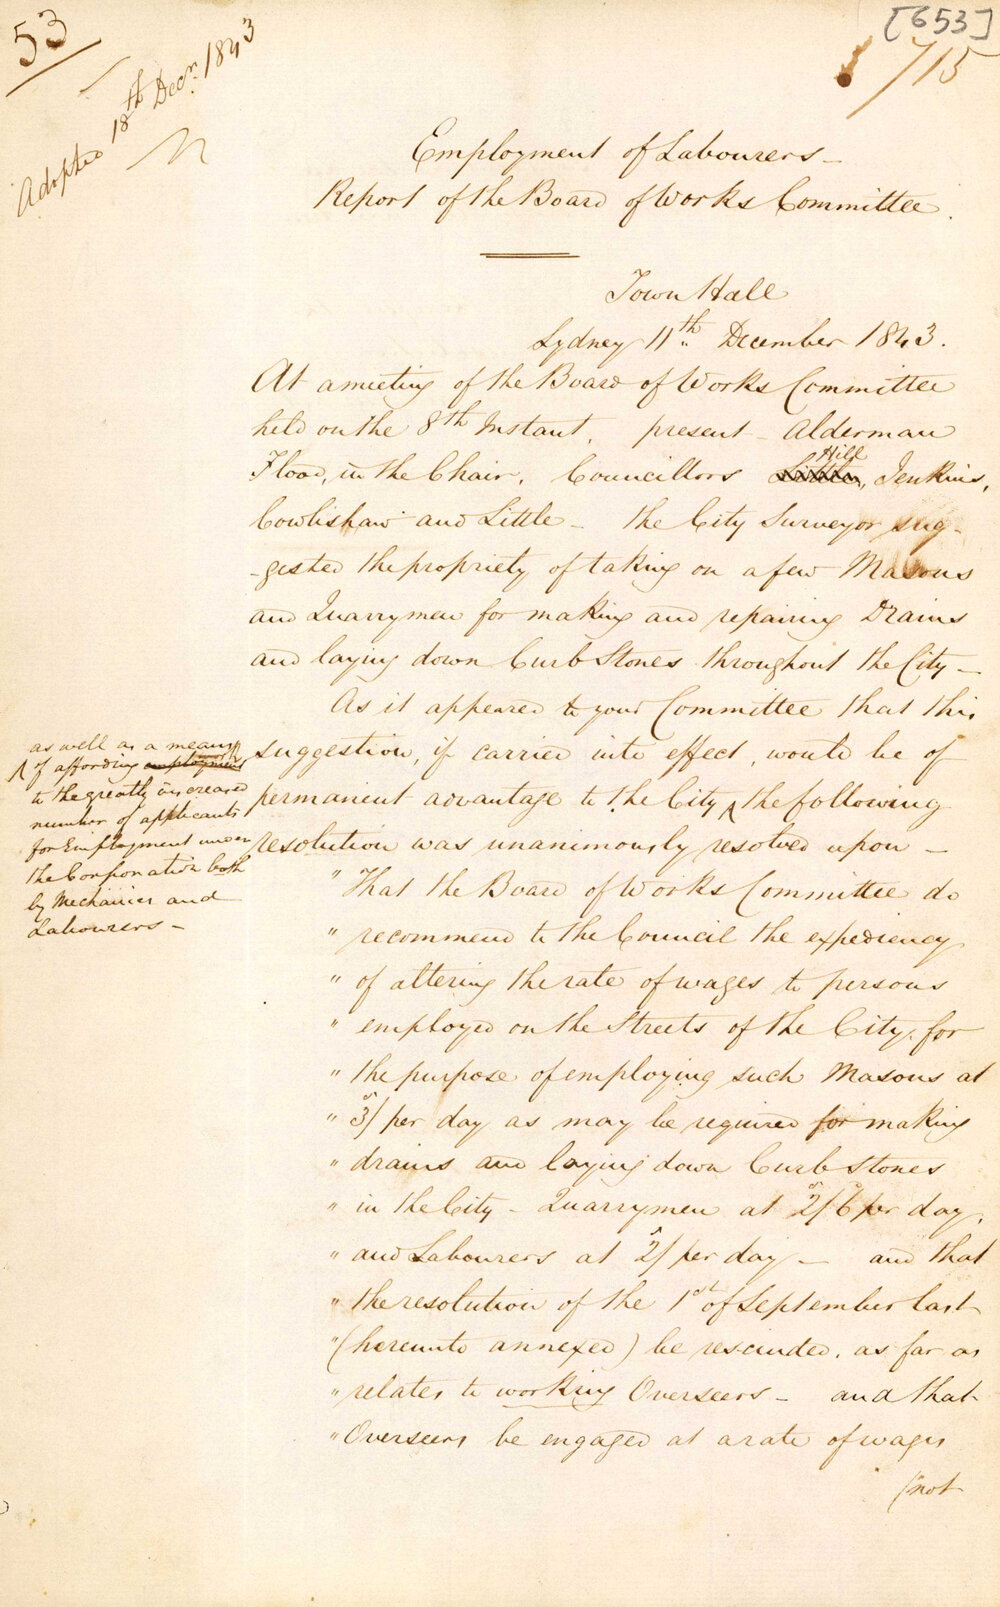 53
[653]
715
Adopted 18th Decr. 1843
Employment of Labourers –
Report of the Board of Works Committee.
Town Hall
Sydney 11th December 1843.
At a meeting of the Board of Works Committee
held on the 8th Instant, present – Alderman
Flood, in the Chair, Councillors Hill, Jenkins,
Cowlishaw and Little – the City Surveyor sug-
-gested the propriety of taking on a few Masons
and Quarrymen for making and repairing Drains
and laying down Curb Stones throughout the City –
As it appeared to your Committee that this
suggestion, if carried into effect, would be of
permanent advantage to the City ^ the following
resolution was unanimously resolved upon –
^ as well as a means
of affording employment
to the greatly increased
number of applicants
for Employment under
the Corporation both
by Mechanics and
Labourers –
" That the Board of Works Committee do
" recommend to the Council the expediency
" of altering the rate of wages to persons
" employed on the Streets of the City, for
" the purpose of employing such Masons at
" 3s/ per day as may be required for making
" drains and laying down Curb Stones
" in the City – Quarrymen at 2s/6 per day,
" and Labourers at 2s/ per day – and that
" the resolution of the 1st of September last
" (hereunto annexed) be rescinded, as far as
" relates to working Overseers – and that
" Overseers be engaged at a rate of wages
(not